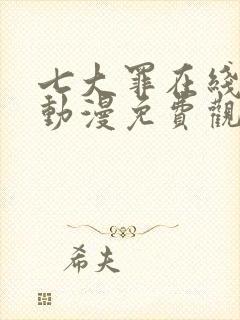 七大罪在綫
動漫免費觀
希夫